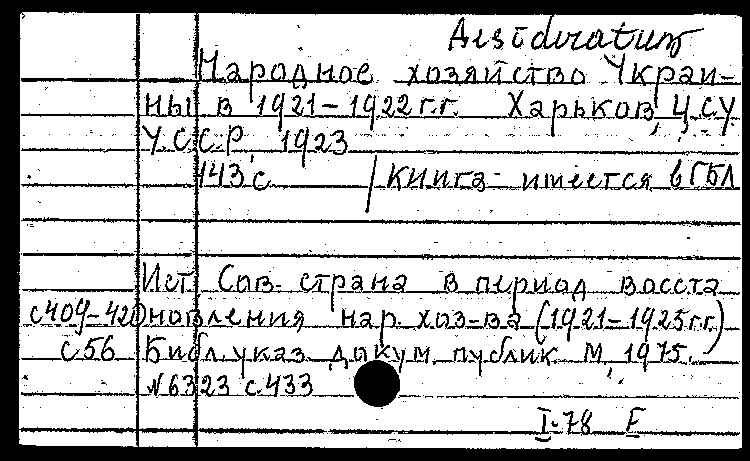 Desideratum
Народное хозяйство Украи-
ны в 1921-1922 г.г. Харьков, ЦСУ
У.С.С.Р, 1923
443 с. / Книга имеется в ГБЛ
Ист. Сов. страна в период восста
с409-420 новления нар. хоз-ва (1921-1925 гг.)
с 56 Библ. указ. докум. публик. М, 1975.
N 6323 с. 433
I-78 Е